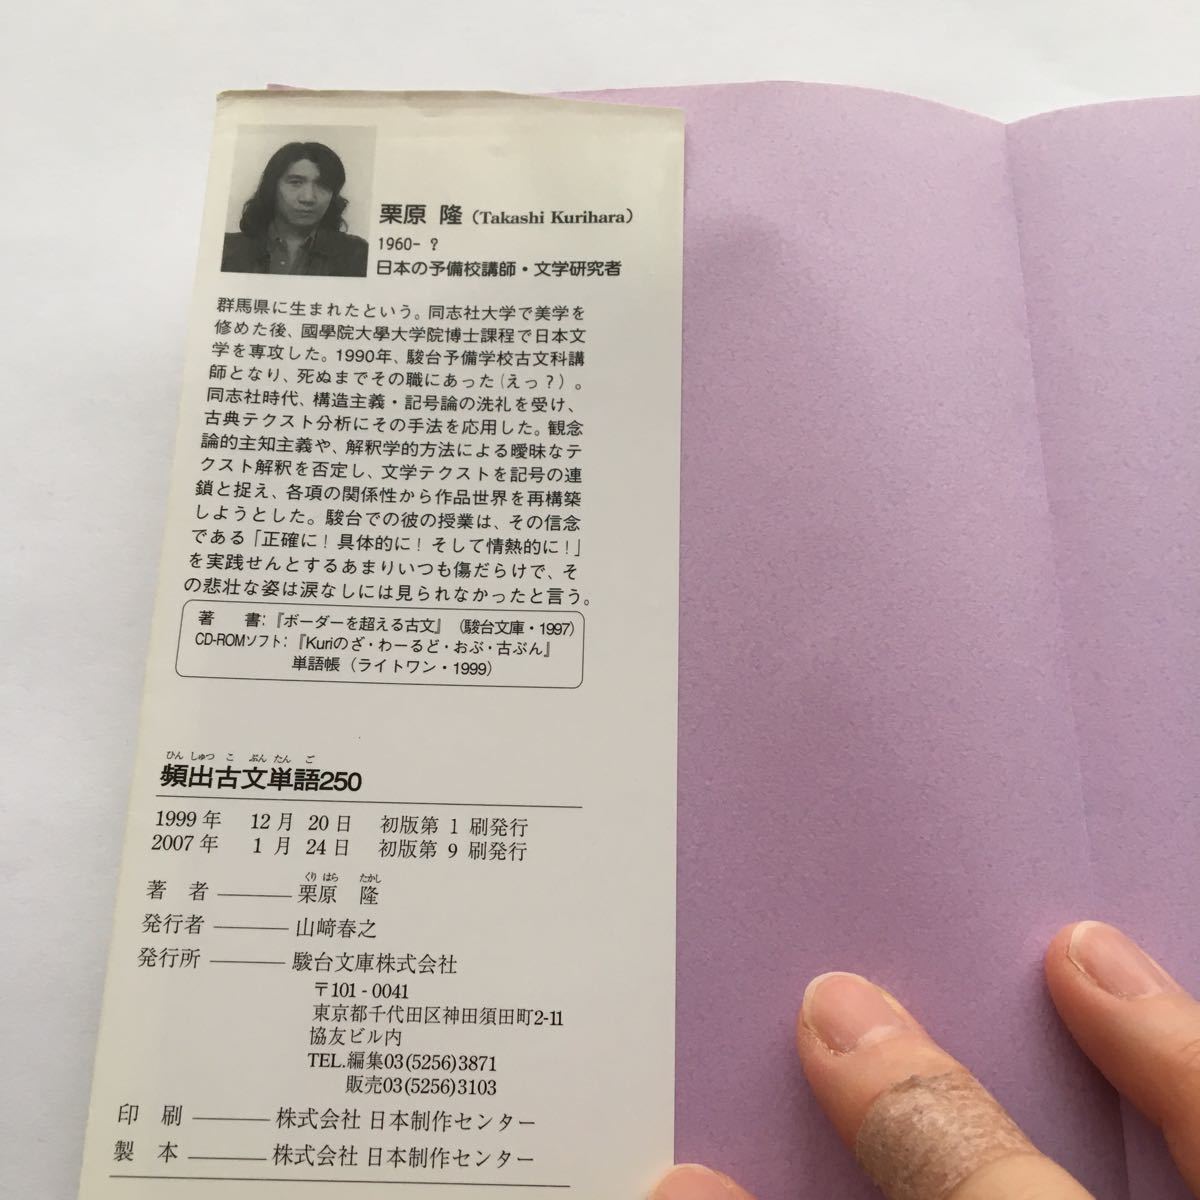 栗原 隆（Takashi Kurihara）
1960- ？
日本の予備校講師・文学研究者
群馬県に生まれたという。同志社大学で美学を
修めた後、國學院大學大学院博士課程で日本文
学を専攻した。1990年、駿台予備学校古文科講
師となり、死ぬまでその職にあった（えっ？）。
同志社時代、構造主義・記号論の洗礼を受け、
古典テクスト分析にその手法を応用した。観念
論的主知主義や、解釈学的方法による曖昧なテ
クスト解釈を否定し、文学テクストを記号の連
鎖と捉え、各項の関係性から作品世界を再構築
しようとした。駿台での彼の授業は、その信念
である「正確に！具体的に！そして情熱的に！」
を実践せんとするあまりいつも傷だらけで、そ
の悲壮な姿は涙なしには見られなかったと言う。
著　書：『ボーダーを超える古文』（駿台文庫・1997）
CD-ROMソフト：『Kuriのざ・わーるど・おぶ・古ぶん』
単語帳（ライトワン・1999）
ひん しゅつ こ ぶん たん ご
頻出古文単語250
1999年 12月 20日 初版第 1 刷発行
2007年 1月 24日 初版第 9 刷発行
くり はら たかし
著 者 ――― 栗原 隆
発行者 ――― 山﨑春之
発行所 ――― 駿台文庫株式会社
〒101-0041
東京都千代田区神田須田町2-11
協友ビル内
TEL.編集03(5256)3871
販売03(5256)3103
印 刷 ――― 株式会社 日本制作センター
製 本 ――― 株式会社 日本制作センター